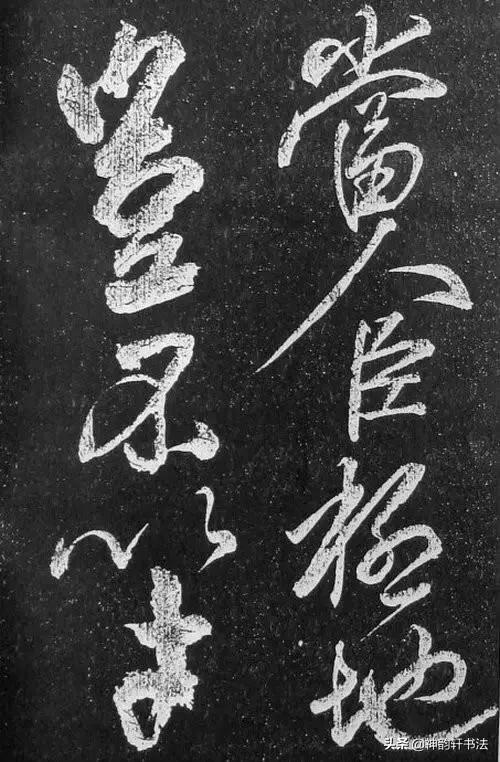 當人臣極地
豈不以才
头条 @神韵轩书法